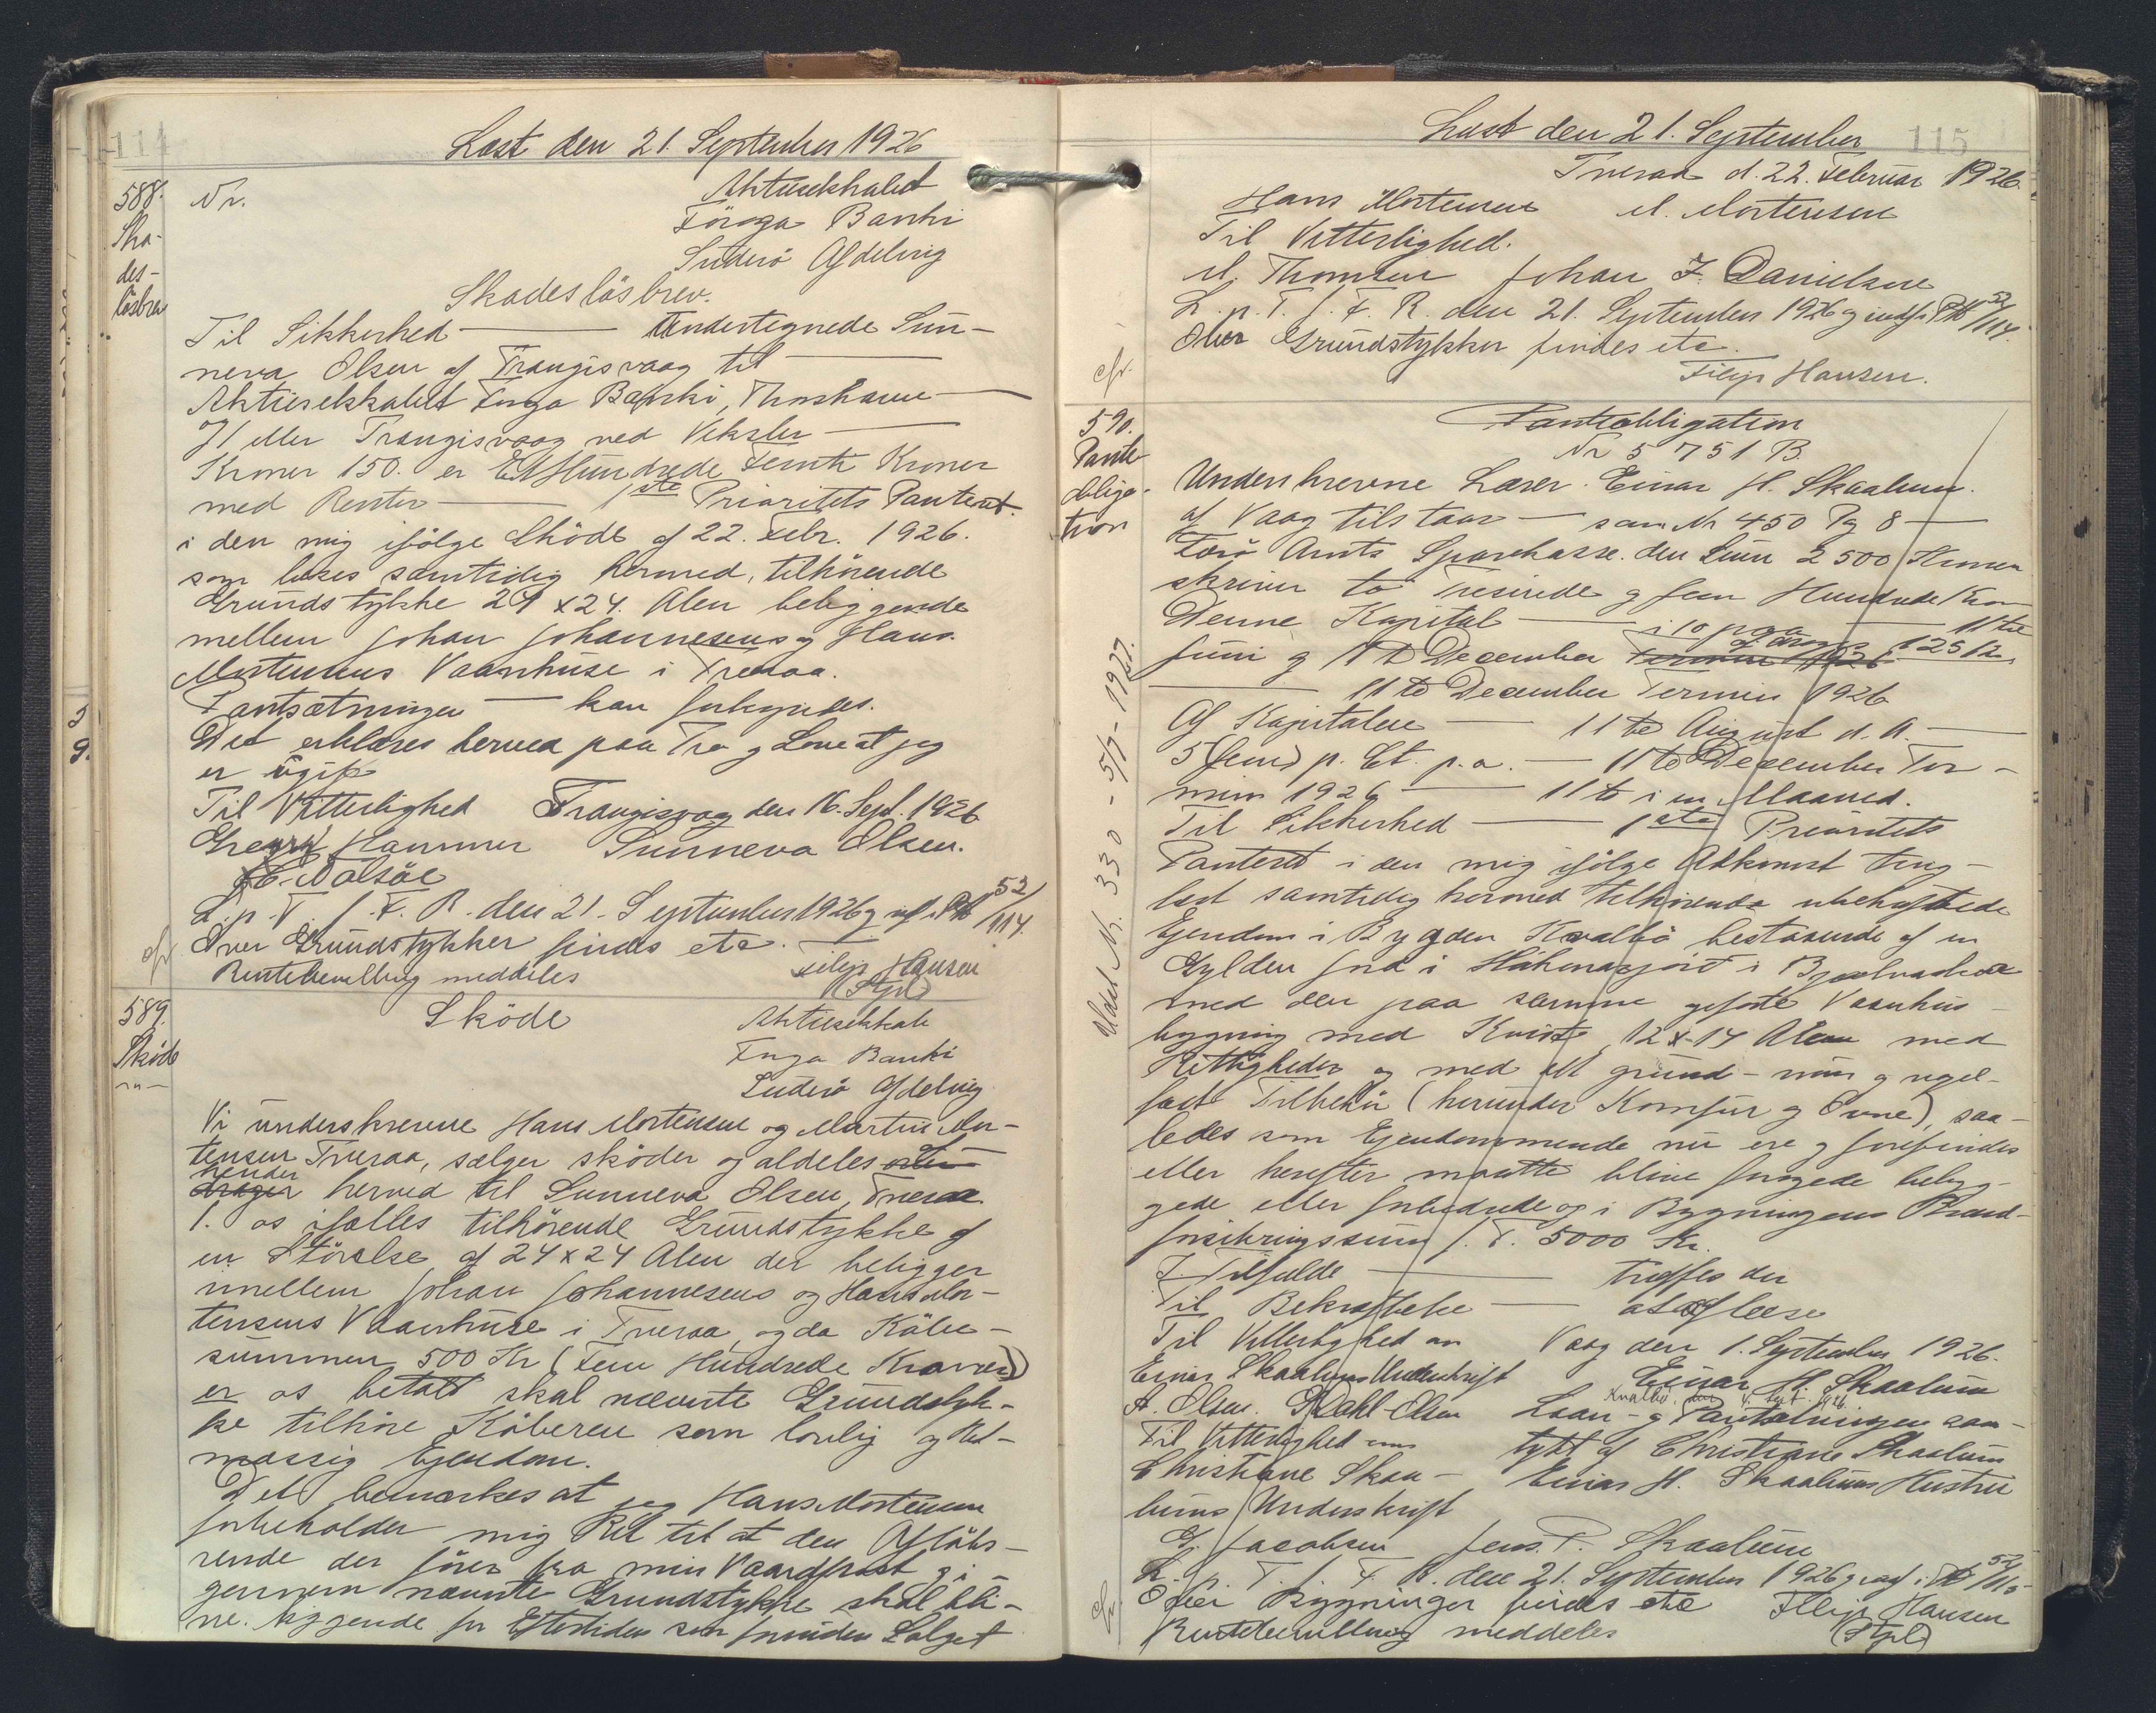 114
Læst den 21. September 1926
588.
Ska-
des-
lösbrev
Nr.
Aktieselskabet
Föroya Banki
Suderö Afdeling
Skadeslösbrev.
Til Sikkerhed — Undertegnede Sun-
neva Olsen af Trangisvaag til —
Aktieselskabet Föroya Banki, Thorshavn —
og/eller Trangisvaag ved Veksler —
Kroner 150. er Et Hundrede Femti Kroner
med Renter — 1ste Prioritets Panteret
i den mig ifölge Sköde af 22. Febr. 1926.
som læses samtidig hermed, tilhörende
Grundstykke 24 x 24. Alen beliggende
mellem Johan Johannesens og Hans
Mortensens Vaanhuse i Tveraa.
Pantsætningen — kan forkyndes.
Det erklæres herved paa Tro og Love at jeg
er ugift
Til Vitterlighed Trangisvaag den 16. Sept. 1926
Hammer Sunneva Olsen.
Nolsöe
L. p. T. f. F. R. den 21. September 1926 og inf. i Pb 52/114.
cfr. Over Grundstykker findes etc.
Rentebevilling meddeles Filip Hansen
(Stpl)
589.
Sköde
Sköde
Aktieselskab
Föroya Banki
Suderö Afdeling
Vi underskrevne Hans Mortensen og Martin Mor-
tensen Tveraa, sælger sköder og aldeles
hender
drager herved til Sunneva Olsen, Tveraa
1. os ifælles tilhörende Grundstykke af
en Störelse af 24 x 24 Alen der beligger
imellem Johan Johannesens og Hans Mor-
tensens Vaanhuse i Tveraa, og da Köbe-
summen 500 Kr (Fem Hundrede Kroner)
er os betalt skal nævnte Grundstyk-
ke tilhöre Köberen som lovlig og Ret-
mæssig Ejendom.
Det bemærkes at jeg Hans Mortensen
forbeholder mig Ret til at den Aflöbs-
rende der förer fra min Vaard og i-
gennem nævnte Grundstykke skal bli-
ve liggende for Eftertiden som forinden Salget
115
Læst den 21. September
Tveraa d. 22. Februar 1926.
Hans Mortensen M. Mortensen
Til Vitterlighed.
M. Thomsen Johan F. Danielsen
L. p. T. f. F. R. den 21. September 1926 og indf. i Pb 52/114.
cfr. Over Grundstykker findes etc.
Filip Hansen.
590.
Pante-
obliga-
tion
Panteobligation
Nr 5751 B
Underskrevne Lærer Einar H. Skaalum
af Vaag tilstaar — som Nr 450 Pg 8 —
Færö Amts Sparekasse den Sum 2500 Kroner
skriver to Tusinde og fem Hundrede Kroner
Denne Kapital — i 10 paa — 11te
Juni og 11te December Termin 1926 125 Kr
— 11te December Termin 1926
Af Kapitalen — 11te August d. A. —
5 (fem) p. Ct. p. a. — 11te December Ter-
min 1926 — 11te i en Maaned.
Til Sikkerhed — 1ste Prioritets
Panteret i den mig ifölge Adkomst ting-
læst samtidig hermed tilhörende ubehæftede
Ejendom i Bygden Kvalbö bestaaende af en
Gylden Jord i Hákunarjörd i
med den paa samme opförte Vaanhus-
bygning med Kvist, 12 x 14 Alen med
Rettigheder og med alt grund- mur og nagel-
fast Tilbehör (herunder Komfur og Ovne), saa-
ledes som Ejendommende nu ere og forefindes
eller herefter maatte blive forogede bebyg-
gede eller forbedrede og i Bygningens Brand-
forsikringssum f. T. 5000 Kr.
I Tilfælde — træffes der
Til Bekræftelse — at aflæse
Til Vitterlighed om Vaag den 1. September 1926.
Einar Skaalums Underskrift Einar H. Skaalum
A. Olsen. G Dahl-Olsen Laan- og Pantsætningen sam-
Kvalbö, den 4. Sept. 1926
Til Vitterlighed om tykt af Christiane Skaalum
Christiane Skaa- Einar H. Skaalums Hustru
lums Underskrift
G. Jacobsen Jens P. Skaalum
L. p. T. f. F. R. den 21. September 1926 og inf. i Pb 52/115
cfr. Over Bygninger findes etc Filip Hansen
Rentebevilling meddeles (Stpl)
Udslet Nr. 330 - 5/7 - 1927.